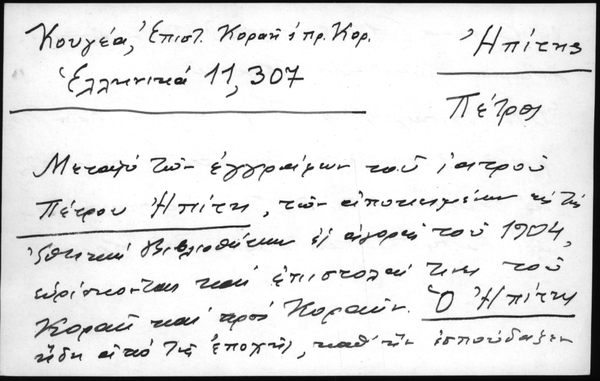 Κουγέα, Ἐπιστ. Κοραῆ ἢ πρ. Κορ.
Ἑλληνικά 11, 307
Ἠπίτης
Πέτρος
Μεταξὺ τῶν ἐγγράφων τοῦ ἰατροῦ
Πέτρου Ἠπίτη, τῶν ἀποκειμένων εἰς τὴν
Ἐθνικὴν Βιβλιοθήκην ἐξ ἀγορᾶς τοῦ 1904,
εὑρίσκονται καὶ ἐπιστολαί τινες τοῦ
Κοραῆ καὶ πρὸς Κοραῆν. Ὁ Ἠπίτης
ἤδη ἀπὸ τῆς ἐποχῆς, καθ' ἣν ἐσπούδαζεν